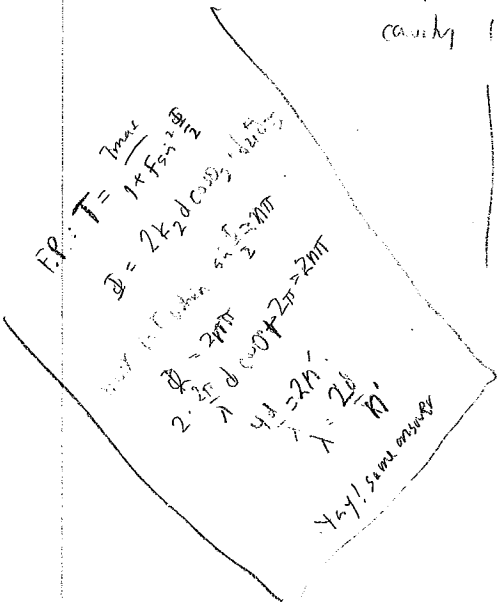 cavity
F.P.: T = Tmax / 1+Fsin² Φ/2
Φ = 2k₂d cosθ₂
when sin Φ/2 = nπ
Φ = 2nπ
2·2π/λ d cos0°+2π=2nπ
4d/λ = 2n'
λ = 2d/n'
Yay! same answer